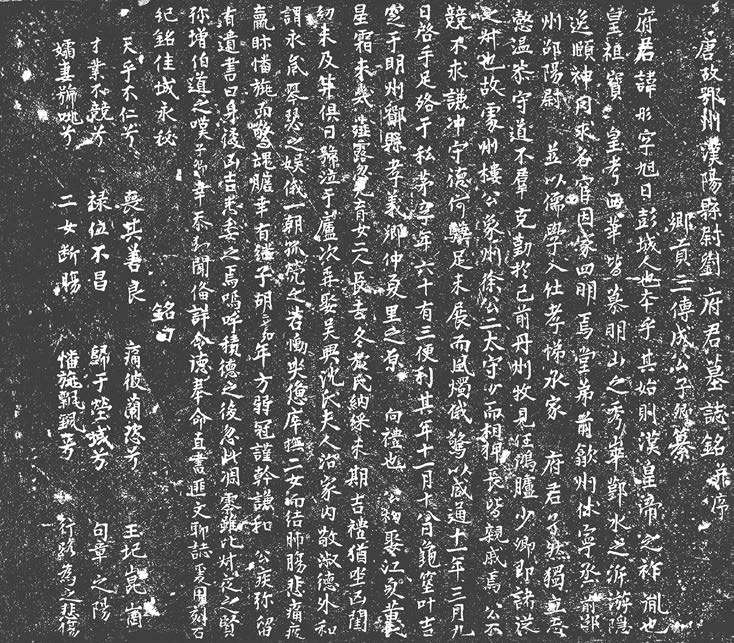 唐故鄂州漢陽縣尉劉府君墓誌銘并序
鄉貢三傳成公子 纂
府君諱彤字旭日彭城人也本乎其始則漢皇帝之祚胤也
皇祖寶 皇考西華皆慕明山之秀 鄞水之 游隱
逸頤神因求 官因家四明焉堂弟前歙州休寧丞前郢
州邵陽尉 並以儒學入仕孝悌承家 府君孑然獨立志
愨溫恭守道不羣克勤於己前丹州牧見任鴻臚少卿即諸從
之 也故處州樓公象州徐公二太守少而相狎長皆親戚焉公不
競不求謙沖守德何驥足未展而風燭俄驚以咸通十一年三月九
日啓手足歿于私第享年六十有三便利其年十一月十八日龜筮叶吉
窆于明州鄮縣孝義鄉仲夏里之原 向禮也 公初娶江夏黃氏
星霜未幾 露 育女二人長 納綵未期吉禮猶 次 閨
幼未及笄俱日號泣于廬次再娶吳興沈氏夫人治家內敬淑德外和
謂永 琴瑟之娛俄一朝孤 之苦慟哭 撫二女而結肺腸悲痛疾
羸 旐而驚魂膽幸有繼子胡 年方弱冠謹幹謙和 公疾弥留
有遺書曰身後凶吉悉委之焉嗚呼積德之後忽此凋零雖 之賢
弥增伯道之嘆子 幸忝 聞備詳令德奉命直書匪文聊誌爰用刻石
紀銘佳城永秘 銘曰
天乎不仁兮 喪其善良 痛彼蘭 兮 玉圮崑崗
才業不競兮 祿位不昌 歸于塋域兮 句章之陽
孀妻號咷兮 二女斷腸 旐飄飄兮 行路為之悲傷